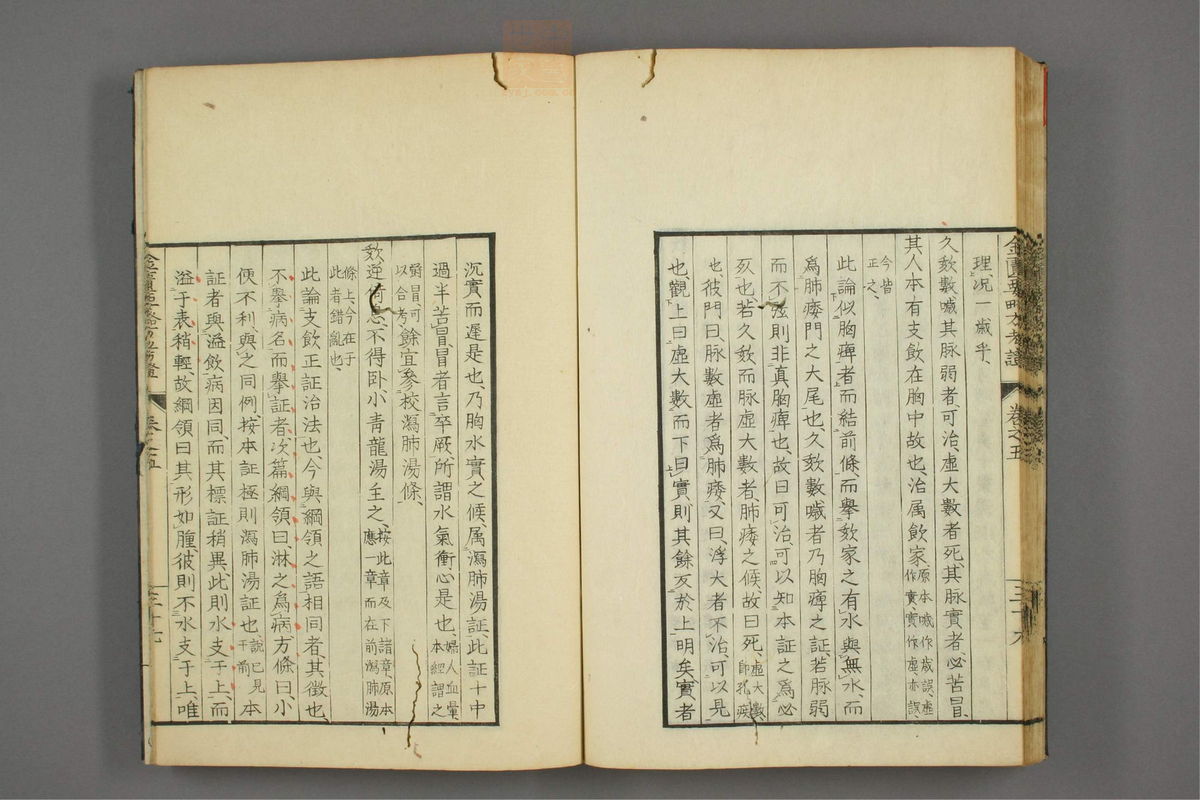 理、况一歲乎、
久欬數喊其脉弱者、可治、虛大數者死、其脉實者、必苦冒、
其人本有支飲在胸中故也、治属飲家、原本喊作歲誤、虛作實、實作虛、亦誤、
今皆正之、
此論似胸痺者、而結前條、而擧欬家之有水與無水、而
爲肺痿門之大尾也、久欬數喊者乃胸痺之証、若脉弱
而不弦則非真胸痺也、故曰可治、可以知本証之爲必
死也、若久欬而脉虛大數者、肺痿之候、故曰死、虛大數即死痿
也、彼門曰、脉數虛者爲肺痿、又曰、浮大者不治、可以見
也、觀上曰虛大數、而下曰實、則其餘反於上明矣、實者
卷之五
沉實而遲是也、乃胸水實之候、属瀉肺湯証、此証十中
過半苦冒、冒者言卒厥、所謂水氣衝心是也、婦人血暈、本經謂之
欝冒、可以合考、餘宜參校瀉肺湯條、
欬逆倚息、不得卧、小青龍湯主之、按此章及下諸章、原本應一章而在前瀉肺湯
條上、今在于此者錯亂也、
此論支飲正証治法也、今與綱領之語相同者、其徵也、
不擧病名而擧証者、次篇綱領曰、淋之爲病、方條曰、小
便不利、與之同例、按本証極則瀉肺湯証也、說已見于前、本
証者與溢飲病因同、而其標証稍異、此則水支于上、而
溢于表稍輕、故綱領曰、其形如腫、彼則不水支于上、唯